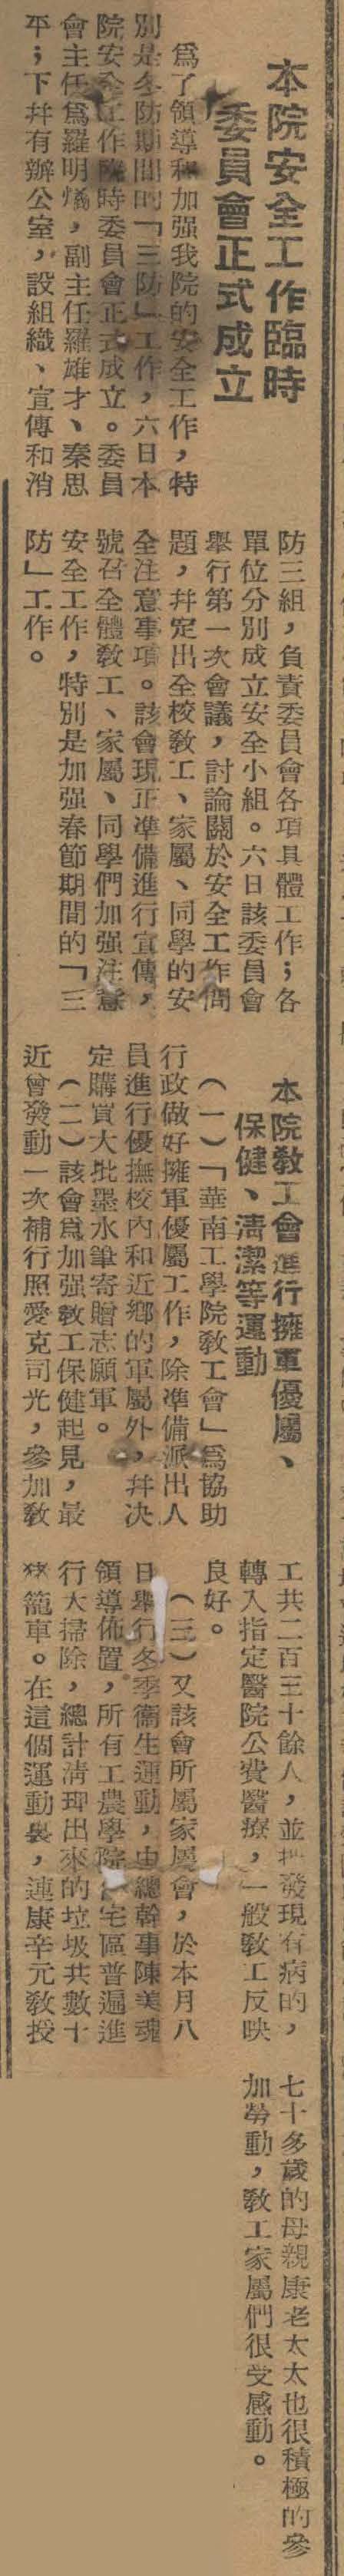 本院安全工作臨時
委員會正式成立
爲了領導和加强我院的安全工作，特
別是冬防期間的「三防」工作，六日本
院安全工作臨時委員會正式成立。委員
會主任爲羅明燏，副主任羅雄才、秦思
平；下幷有辦公室，設組織、宣傳和消
防三組，負責委員會各項具體工作；各
單位分別成立安全小組。六日該委員會
舉行第一次會議，討論關於安全工作問
題，幷定出全校敎工、家屬、同學的安
全注意事項。該會現正準備進行宣傳，
號召全體敎工、家屬、同學們加强注意
安全工作，特別是加强春節期間的「三
防」工作。
本院敎工會進行擁軍優屬、
保健、淸潔等運動
（一）「華南工學院敎工會」爲協助
行政做好擁軍優屬工作，除準備派出人
員進行優撫校內和近鄕的軍屬外，幷决
定購買大批墨水筆寄贈志願軍。
（二）該會爲加强敎工保健起見，最
近曾發動一次補行照愛克司光，參加敎
工共二百三十餘人，並把發現有病的，
轉入指定醫院公費醫療，一般敎工反映
良好。
（三）又該會所屬家屬會，於本月八
日舉行冬季衞生運動，由總幹事陳美魂
領導佈置，所有工農學院住宅區普遍進
行大掃除，總計淸理出來的垃圾共數十
猪籠車。在這個運動裏，連康辛元敎授
七十多歲的母親康老太太也很積極的參
加勞動，敎工家屬們很受感動。